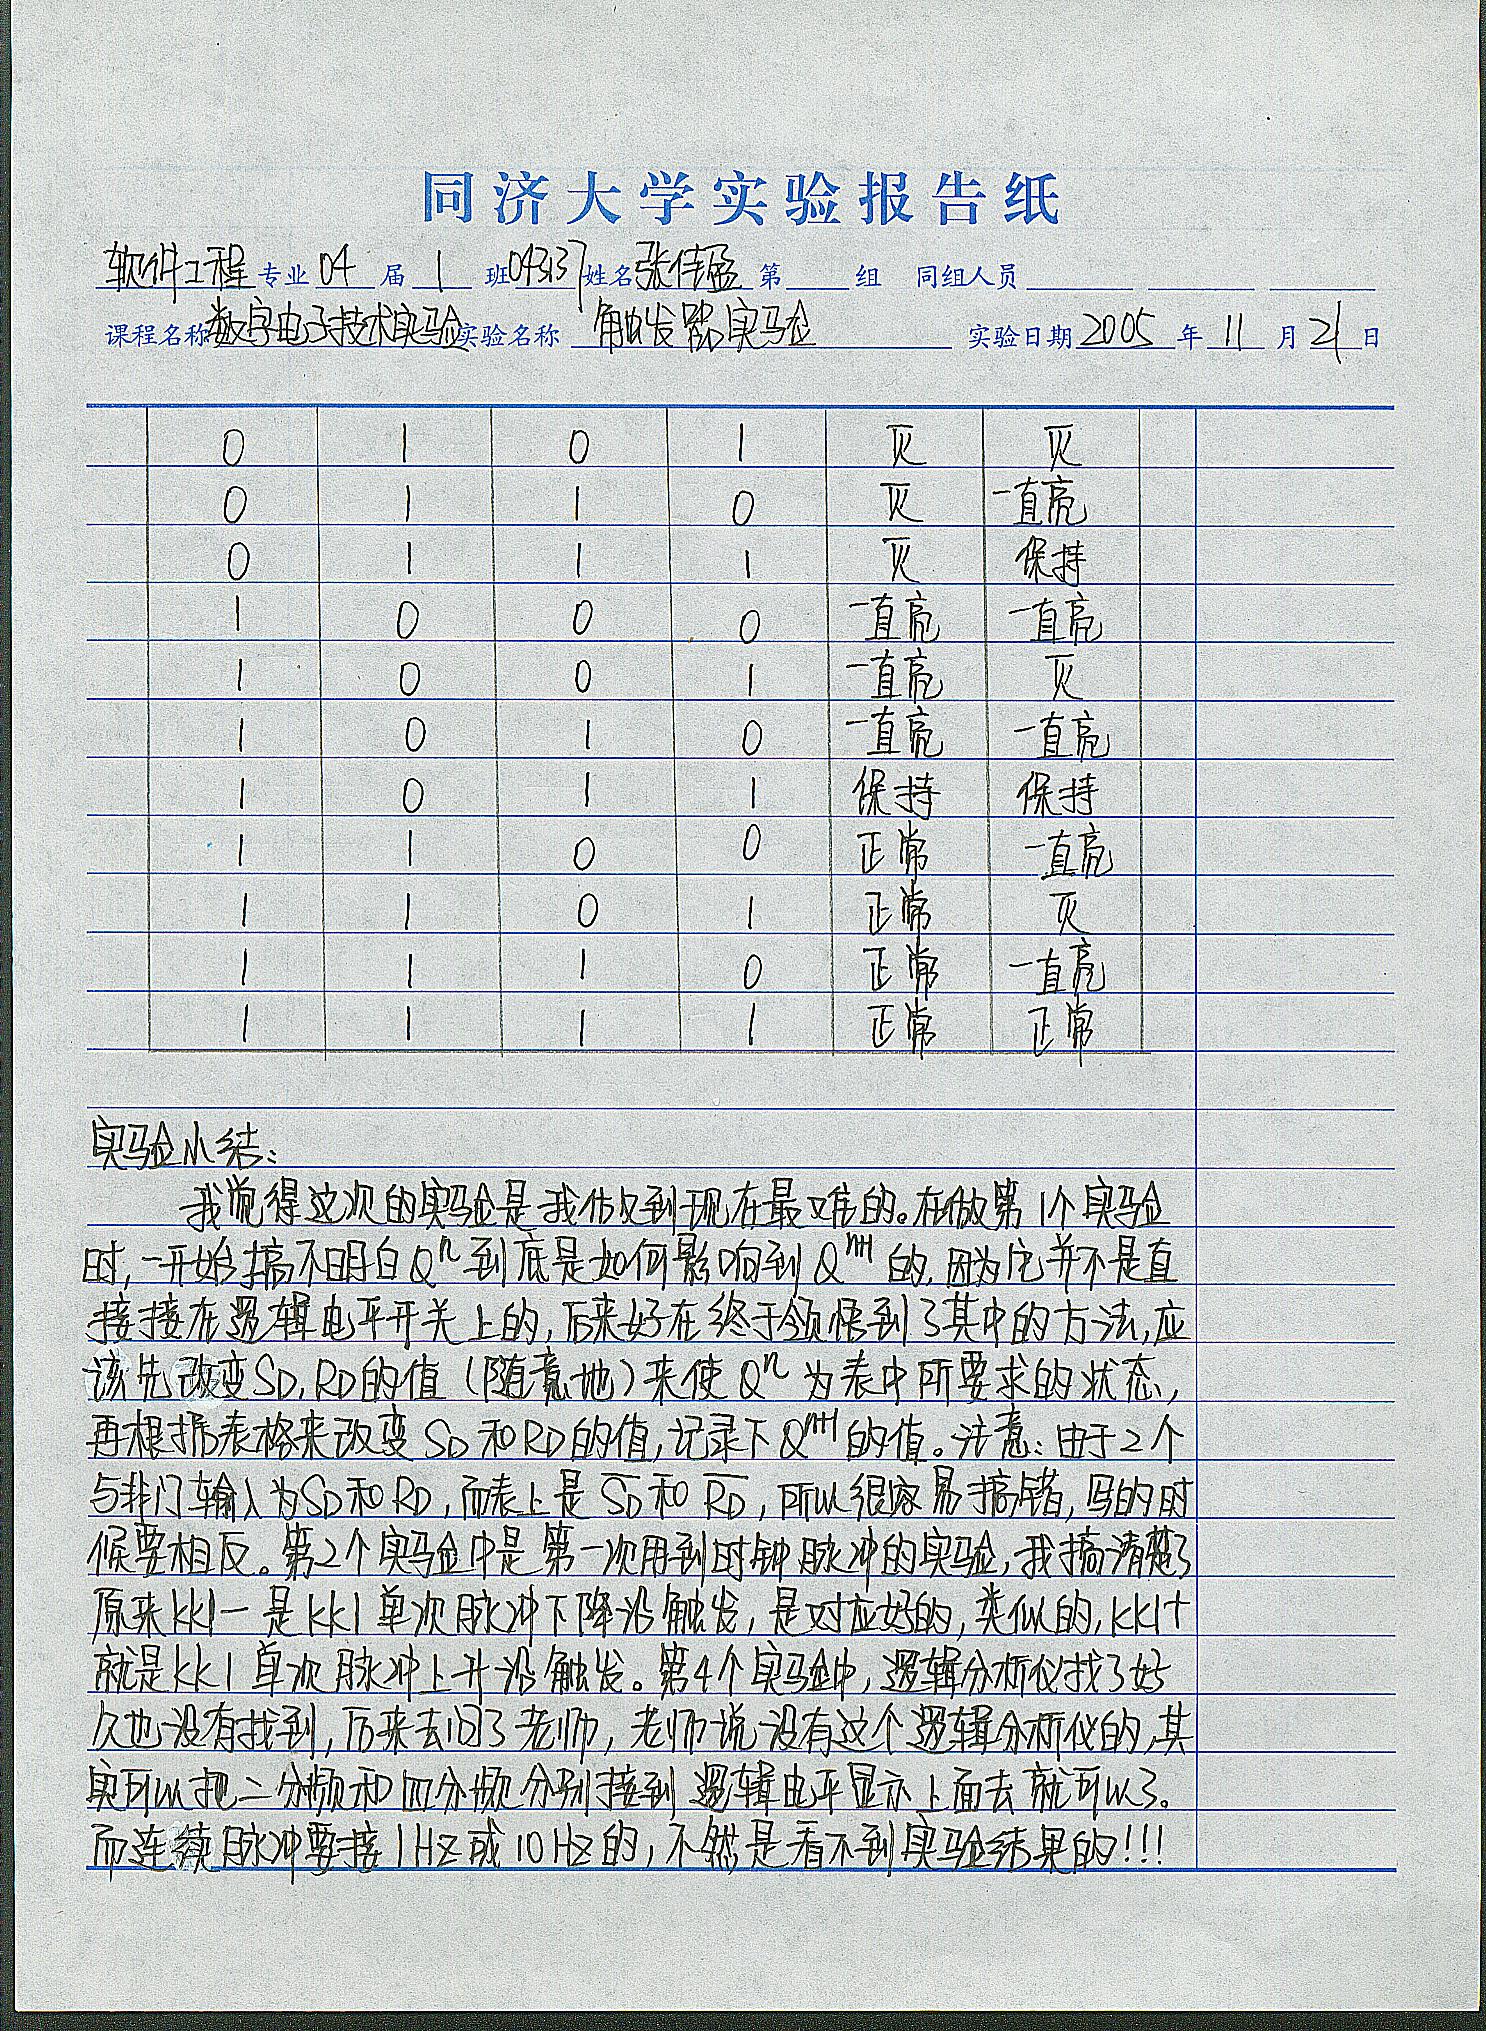 同济大学实验报告纸
软件工程专业04届1班043137姓名张佳盈第 组 同组人员
课程名称数字电子技术实验实验名称 触发器实验 实验日期2005年11月21日
0 1 0 1 灭 灭
0 1 1 0 灭 一直亮
0 1 1 1 灭 保持
1 0 0 0 一直亮 一直亮
1 0 0 1 一直亮 灭
1 0 1 0 一直亮 一直亮
1 0 1 1 保持 保持
1 1 0 0 正常 一直亮
1 1 0 1 正常 灭
1 1 1 0 正常 一直亮
1 1 1 1 正常 正常
实验小结:
我觉得这次的实验是我做到现在最难的。在做第1个实验
时,一开始搞不明白Qⁿ到底是如何影响到Qⁿ⁺¹的,因为它并不是直
接接在逻辑电平开关上的,后来好在终于领悟到了其中的方法,应
该先改变SD,RD的值(随意地)来使Qⁿ为表中所要求的状态,
再根据表格来改变SD和RD的值,记录下Qⁿ⁺¹的值。注意:由于2个
与非门输入为SD和RD,而表上是S̅D和R̅D,所以很容易搞错,写的时
候要相反。第2个实验中是第一次用到时钟脉冲的实验,我搞清楚了
原来KK1-是KK1单次脉冲下降沿触发,是对应好的,类似的,KK1+
就是KK1单次脉冲上升沿触发。第4个实验中,逻辑分析仪找了好
久也没有找到,后来去问了老师,老师说没有这个逻辑分析仪的,其
实可以把二分频和四分频分别接到逻辑电平显示上面去就可以了。
而连续脉冲要接1HZ或10HZ的,不然是看不到实验结果的!!!